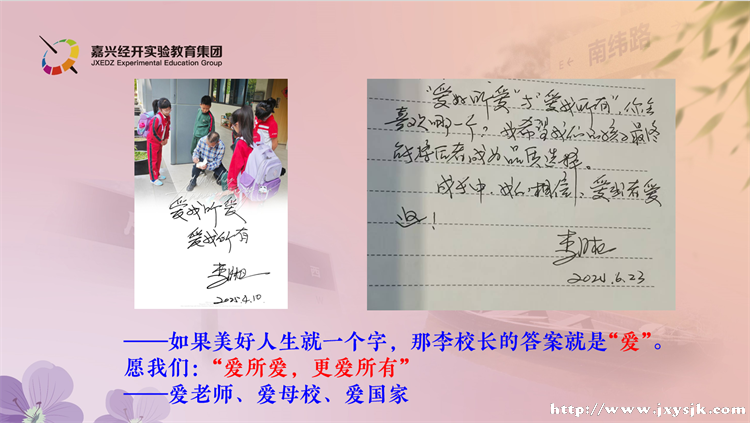 嘉兴经开实验教育集团
JXEDZ Experimental Education Group
南纬路
爱我所爱
爱我所有
2025.4.10
“爱我所爱”与“爱我所有”,你会
喜欢哪一个?我希望我们的孩子最终
能将后者成为品质选择。
成长中,我们相信,爱出者爱
返!
——如果美好人生就一个字,那李校长的答案就是“爱”。
愿我们:“爱所爱,更爱所有”
——爱老师、爱母校、爱国家
http://www.jxysjk.com